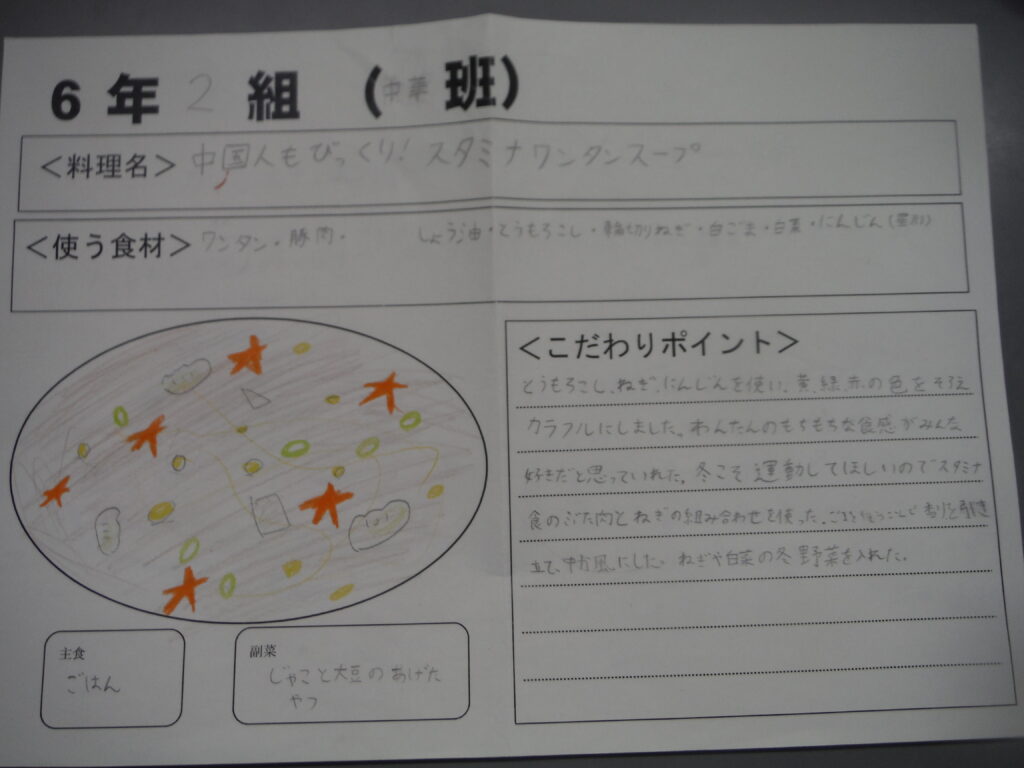 6年2組(中華班)
<料理名> 中国人もびっくり!スタミナワンタンスープ
<使う食材> ワンタン・豚肉・ しょう油・とうもろこし・輪切りねぎ・白ごま・白菜・にんじん(星形)
<こだわりポイント>
とうもろこし、ねぎ、にんじんを使い、黄、緑、赤の色をそろえ
カラフルにしました。わんたんのもちもちな食感がみんな
好きだと思っていれた。冬こそ運動してほしいのでスタミナ
食のぶた肉とねぎの組み合わせを使った。ごまと
立て、中か風にした。ねぎや白菜の冬野菜を入れた。
主食
ごはん
副菜
じゃこと大豆のあげた
やつ